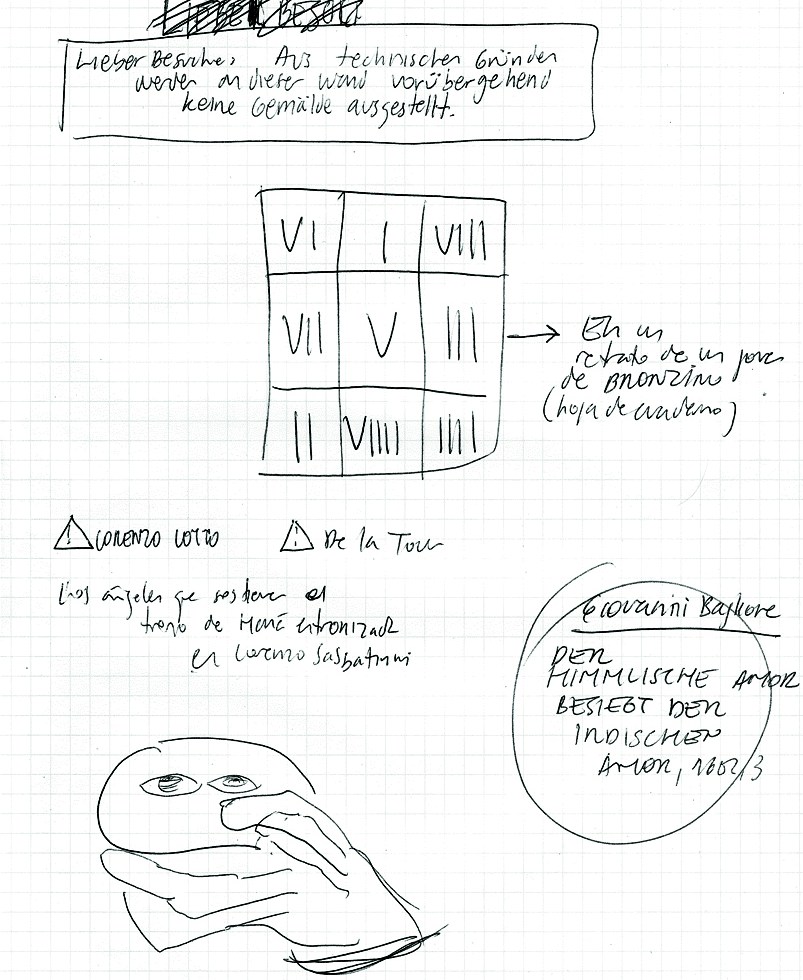 Lieber Besucher, Aus technischen Gründen
werden an dieser Wand vorübergehend
keine Gemälde ausgestellt.
VI I VIII
VII V III
II VIIII IIII
→ En un
retrato de un joven
de BRONZINO
(hoja de cuaderno)
LORENZO LOTTO
De la Tour
Los ángeles que sostienen el
trono de María entronizada
en Lorenzo Sabbatini
Giovanni Baglione
DER
HIMMLISCHE AMOR
BESIEGT DER
IRDISCHEN
AMOR, 1602/3